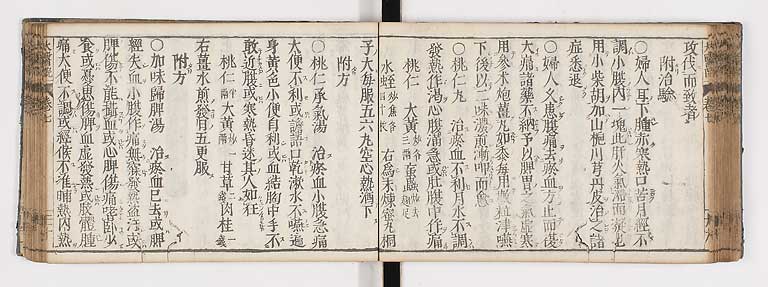 攻伐而致者
附治驗
○婦人耳下腫赤寒熱口苦月經不
調小腹內一塊此肝火氣滯而凝也
用小柴胡加山梔川芎丹皮治之諸
症悉退
○婦人久患腹痛去瘀血方止而復
大痛諸藥不納予以脾胃之氣虛寒
用參朮炮薑丸如黍每用數粒津嚥
下後以二味濃煎漸呷而愈
○桃仁丸 治瘀血不利月水不調
發熱作渴心腹滿急或肚腹中作痛
桃仁 大黃 各三兩 虻蟲 炒去翅足
水蛭 炒焦各 右爲末煉蜜丸桐
子大每服五六丸空心熱酒下
附方
○桃仁承氣湯 治瘀血小腹急痛
大便不利或譫語口乾漱水不嚥遍
身黃色小便自利或血結胸中手不
敢近腹或寒熱昏迷其人如狂
桃仁 大黃 炒一 甘草 二錢 肉桂 一錢
右薑水煎發日五更服
附方
○加味歸脾湯 治瘀血已去或脾
經失血小腹作痛或發熱盜汗或
脾傷不能攝血或心脾傷痛嗜臥少
食或憂思傷脾血虛發熱或肢體腫
痛大便不調或經候不准晡熱內熱